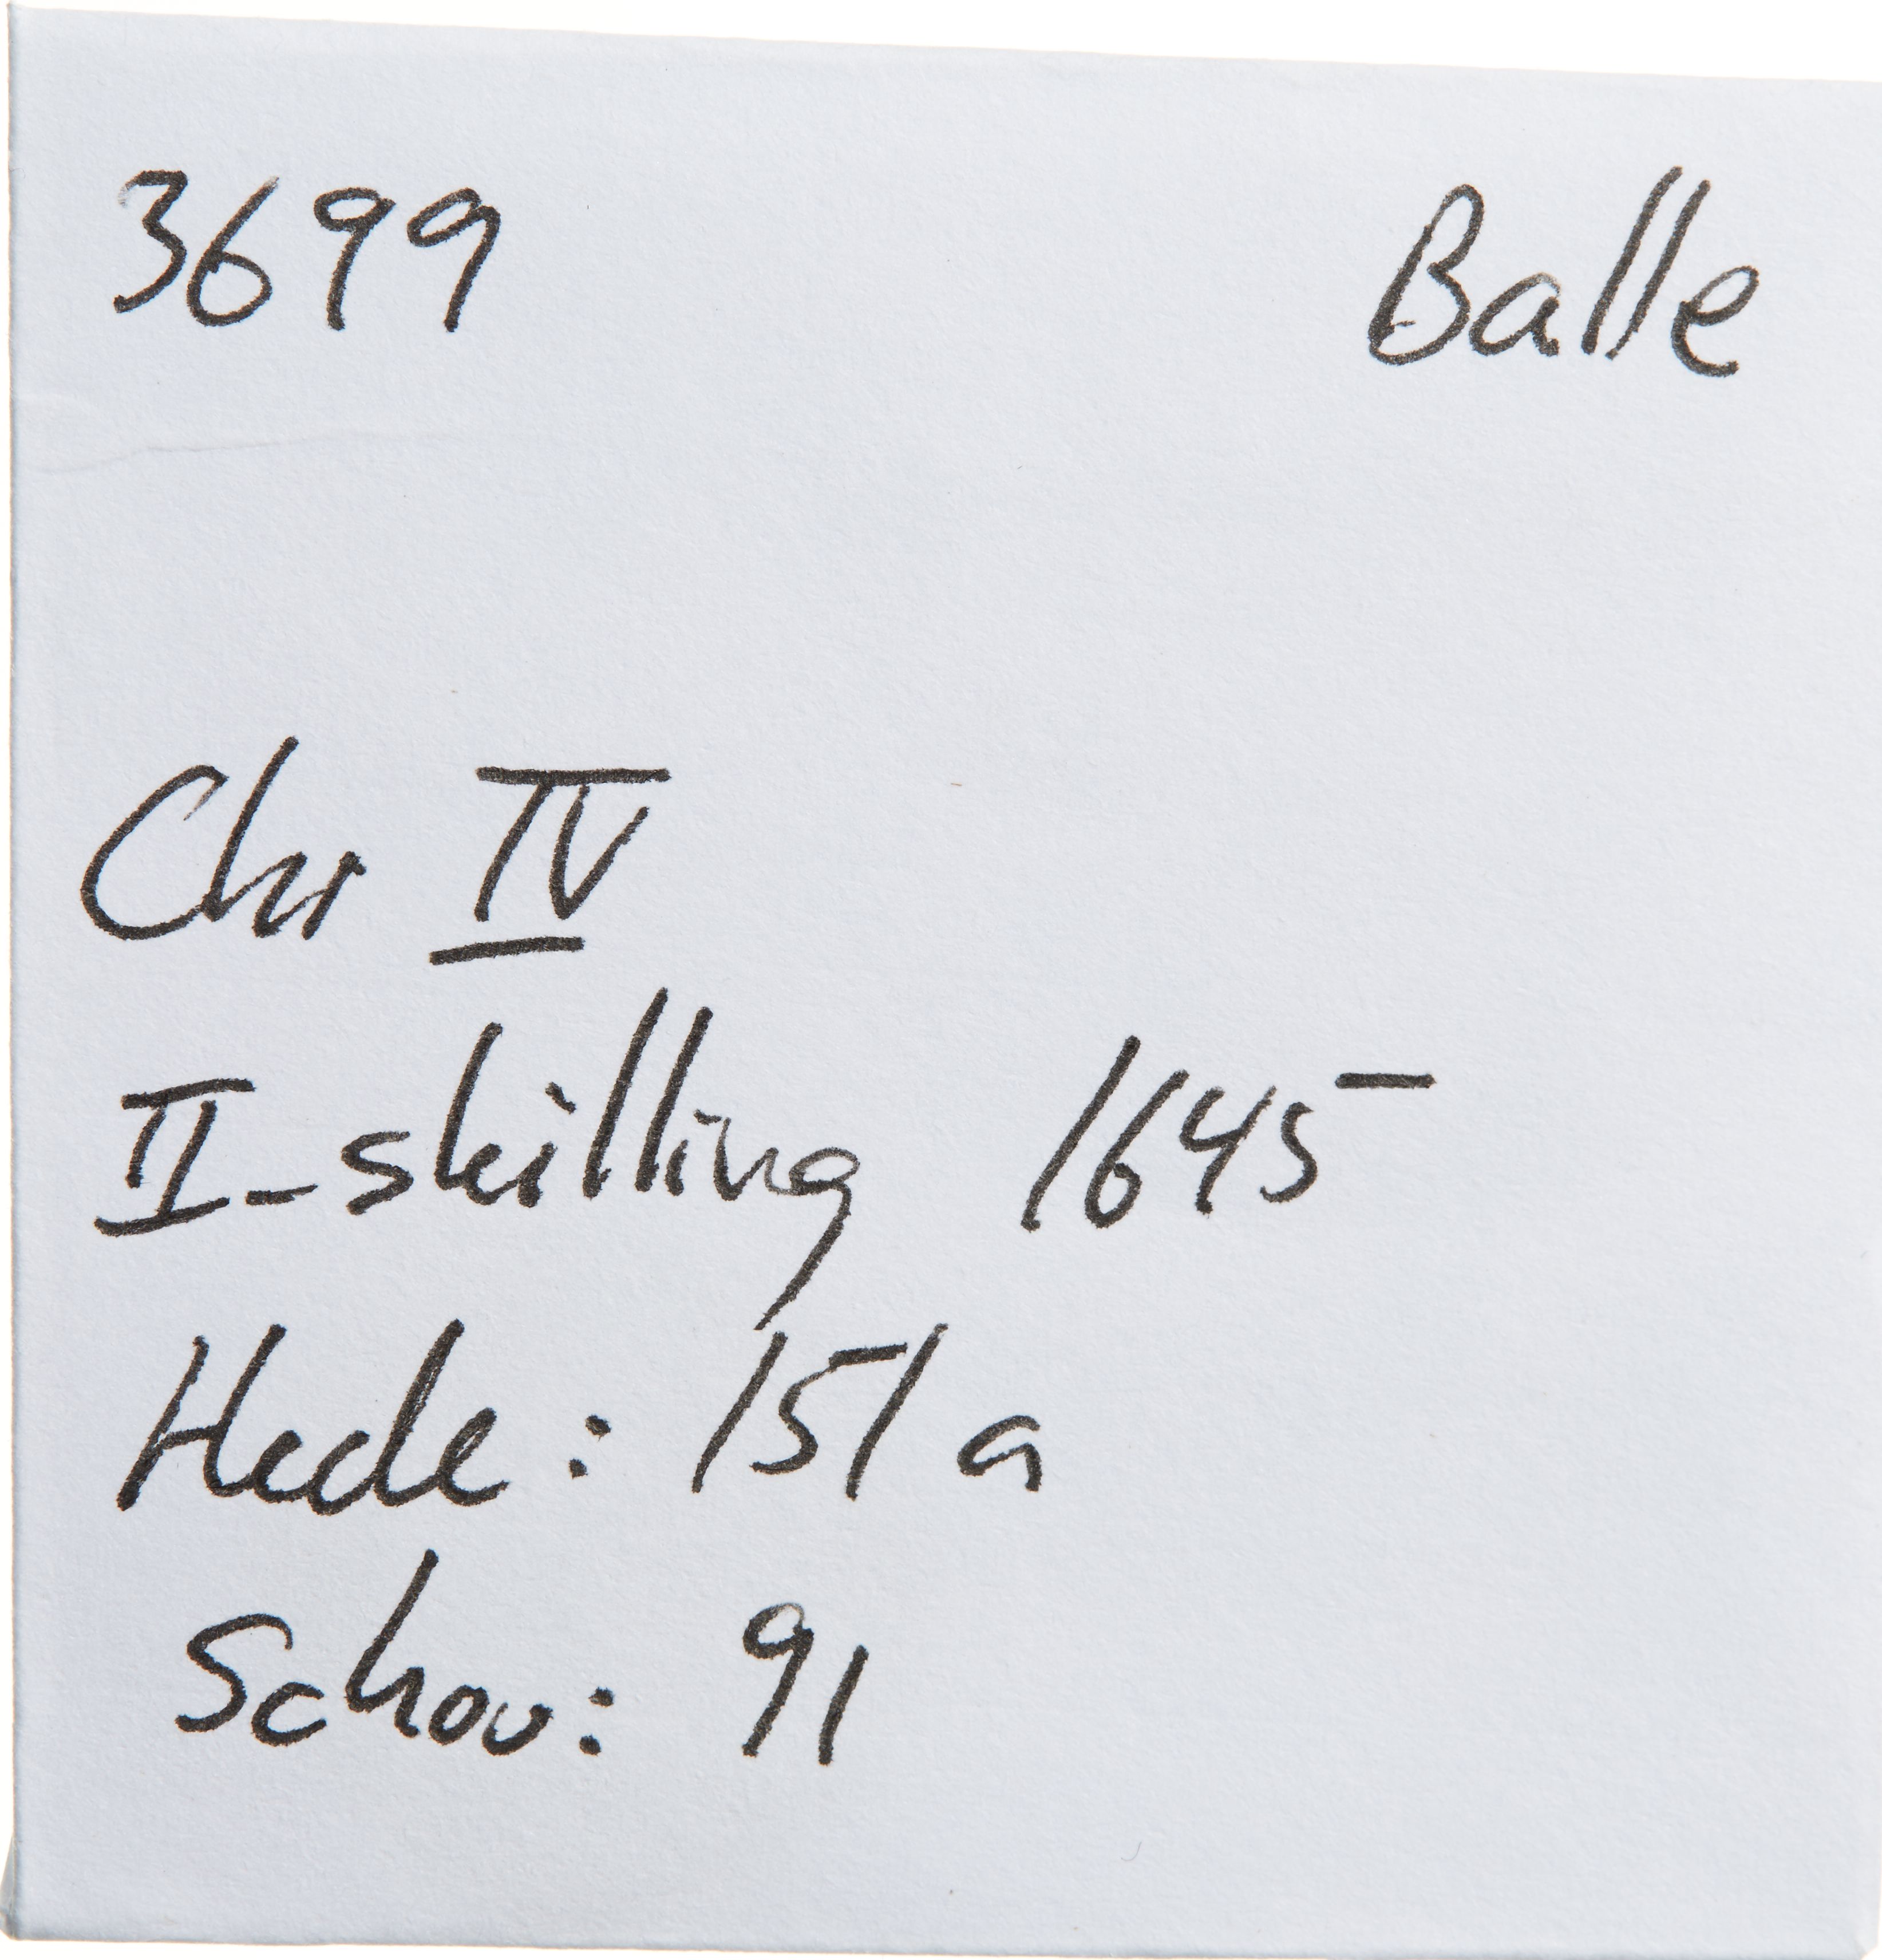 3699 Balle
Chr IV
II-skilling 1645
Hede: 151a
Schou: 91